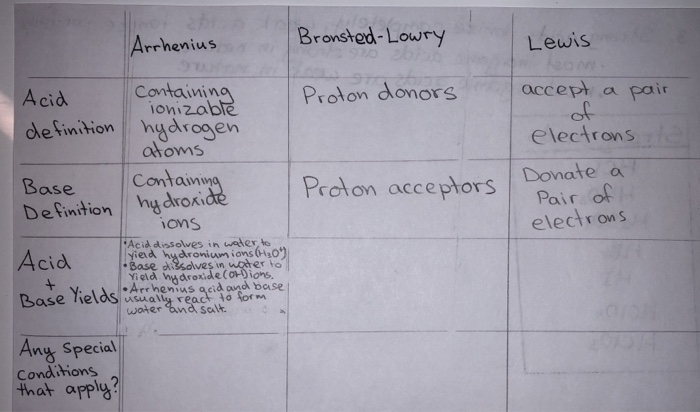 Arrhenius
Bronsted-Lowry
Lewis
Acid
definition
Containing
ionizable
hydrogen
atoms
Proton donors
accept a pair
of
electrons
Base
Definition
Containing
hydroxide
ions
Proton acceptors
Donate a
Pair of
electrons
Acid
+
Base Yields
•Acid dissolves in water to
yield hydronium ions (H₃O⁺)
•Base dissolves in water to
Yield hydroxide (OH) ions.
•Arrhenius acid and base
usually react to form
water and salt.
Any Special
Conditions
that apply?